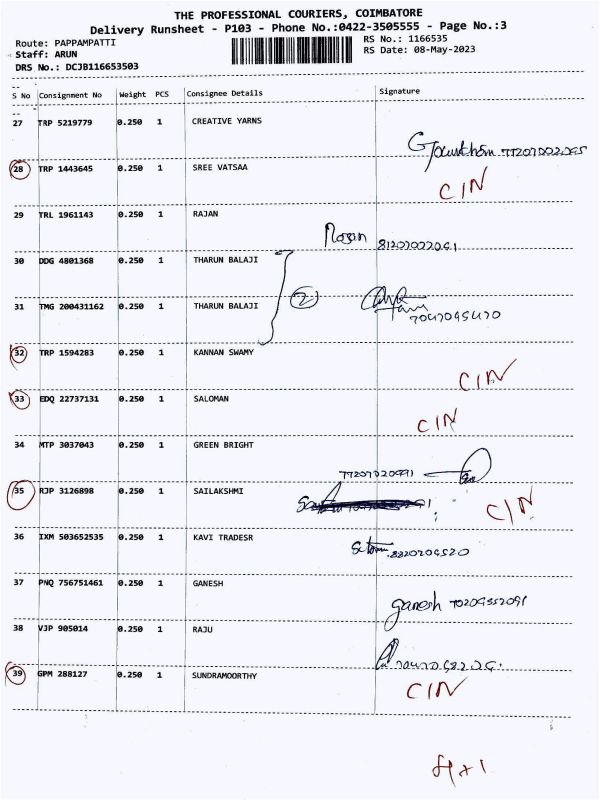 THE PROFESSIONAL COURIERS, COIMBATORE
Delivery Runsheet - P103 - Phone No.:0422-3505555 - Page No.:3
Route: PAPPAMPATTI RS No.: 1166535
Staff: ARUN RS Date: 08-May-2023
DRS No.: DCJB116653503
S No Consignment No Weight PCS Consignee Details Signature
27 TRP 5219779 0.250 1 CREATIVE YARNS
28 TRP 1443645 0.250 1 SREE VATSAA
C/N
29 TRL 1961143 0.250 1 RAJAN
30 DDG 4801368 0.250 1 THARUN BALAJI
2
31 TMG 200431162 0.250 1 THARUN BALAJI
32 TRP 1594283 0.250 1 KANNAN SWAMY
C/N
33 EDQ 22737131 0.250 1 SALOMAN
C/N
34 MTP 3037043 0.250 1 GREEN BRIGHT
35 RJP 3126898 0.250 1 SAILAKSHMI
C/N
36 IXM 503652535 0.250 1 KAVI TRADESR
37 PNQ 756751461 0.250 1 GANESH
ganesh
38 VJP 905014 0.250 1 RAJU
39 GPM 288127 0.250 1 SUNDRAMOORTHY
C/N